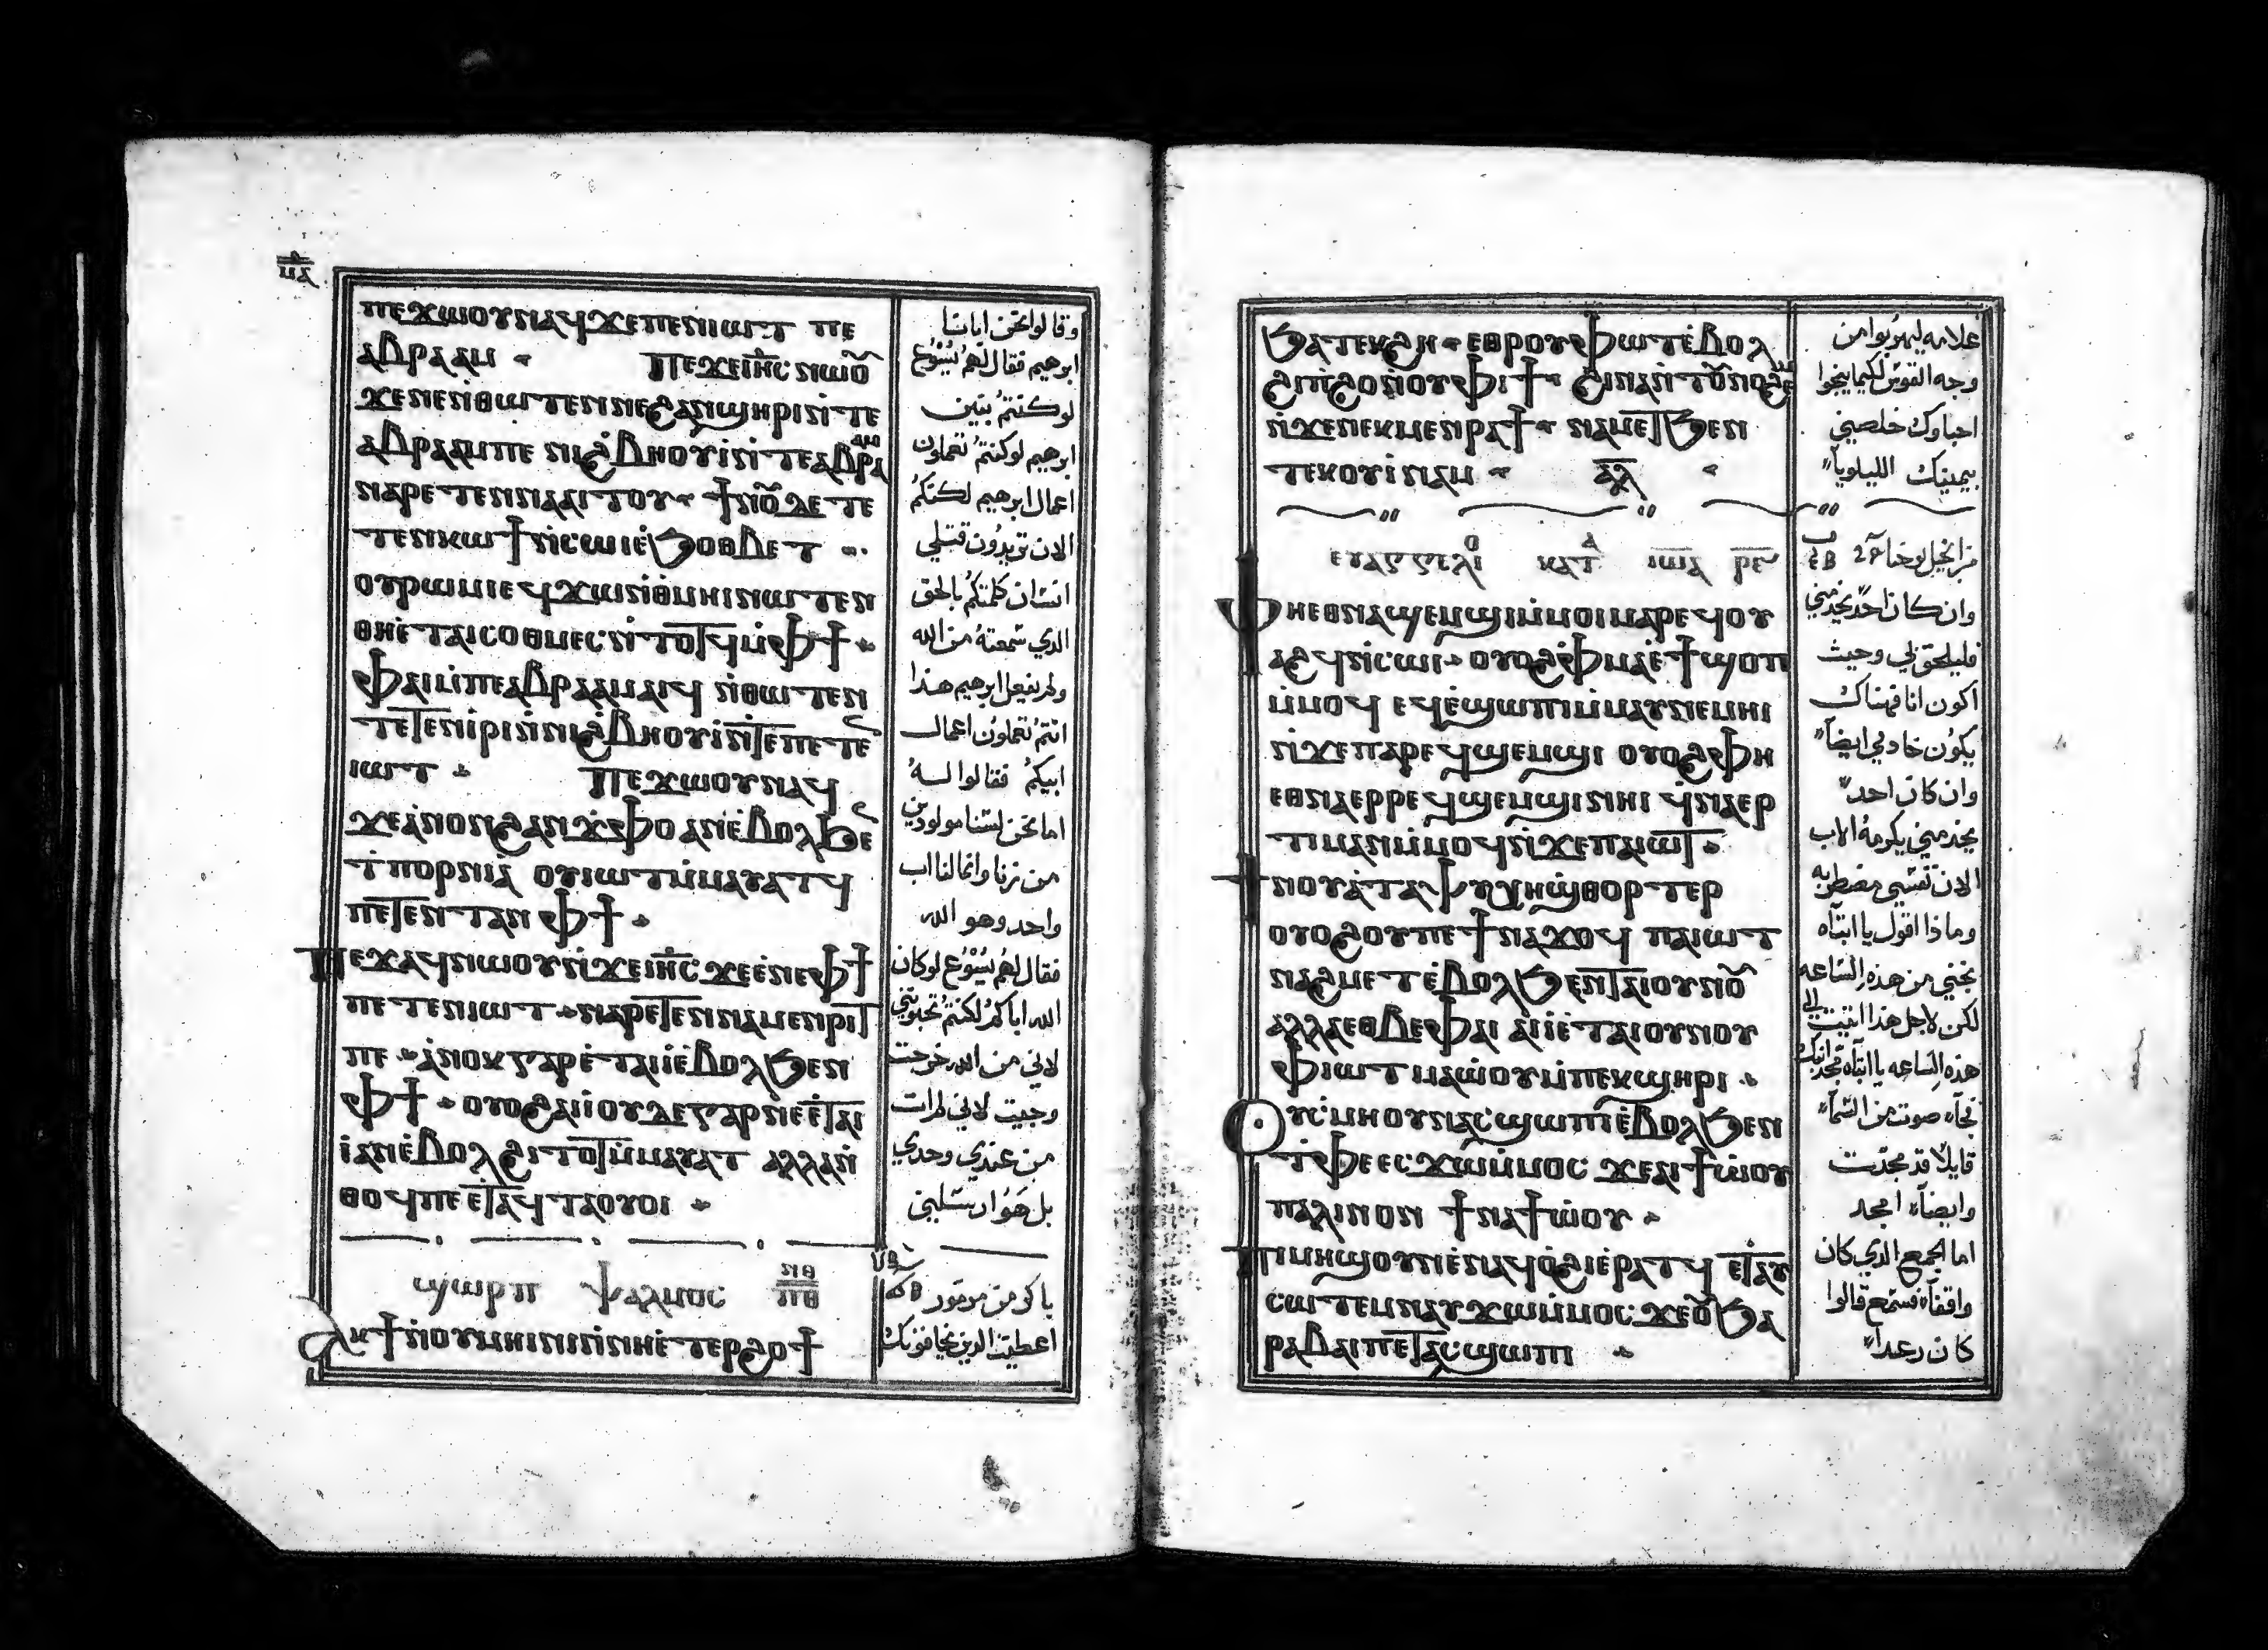 ⲙ̅ⲁ̅
ⲡⲉϫⲱⲟⲩⲛⲁϥϫⲉⲡⲉⲛⲓⲱⲧ ⲡⲉ
ⲁⲃⲣⲁⲁⲙ ⲡⲉϫⲉⲓⲏ̅ⲥ̅ⲛⲱⲟ̅
ϫⲉⲛⲉⲛ̀ⲑⲱⲧⲉⲛⲛⲉϩⲁⲛϣⲏⲣⲓⲛ̀ⲧⲉ
ⲁⲃⲣⲁⲁⲙⲡⲉ ⲛⲓϩ̀ⲃⲏⲟⲩⲓ̀ⲛ̀ⲧⲉⲁⲃⲣⲁⲁⲙ
ⲛⲁⲣⲉⲧⲉⲛⲛⲁⲁⲓⲧⲟⲩ ϯⲛⲟ̅ⲇⲉⲧⲉ
ⲧⲉⲛⲕⲱϯⲛ̀ⲥⲱⲓⲉ̀ϧⲟⲑⲃⲉⲧ
ⲟⲩⲣⲱⲙⲓⲉϥϫⲱⲛ̀ⲑⲙⲏⲓⲛⲱⲧⲉⲛ
ⲑⲏⲉ̀ⲧⲁⲓⲥⲟⲑⲙⲉⲥⲛ̀ⲧⲟⲧϥⲙ̀ⲫϯ
ⲫⲁⲓⲙ̀ⲡⲉⲁⲃⲣⲁⲁⲙⲁⲓϥ ⲛ̀ⲑⲱⲧⲉⲛ
ⲧⲉⲧⲉⲛⲓ̀ⲣⲓⲛ̀ⲛⲓϩ̀ⲃⲏⲟⲩⲓ̀ⲛ̀ⲧⲉⲡⲉⲧⲉ̅
ⲓⲱⲧ ⲡⲉϫⲱⲟⲩⲛⲁϥ
ϫⲉⲁ̀ⲛⲟⲛϩⲁⲛϫ̀ⲫⲟ ⲁⲛⲉ̀ⲃⲟⲗϧⲉ̅
ϯⲡⲟⲣⲛⲓⲁ̀ ⲟⲩⲓⲱⲧⲙ̀ⲙⲁⲩⲁⲧϥ
ⲡⲉⲧⲉⲛⲧⲁⲛ ⲫϯ
ⲡⲉϫⲁϥⲛⲱⲟⲩⲛ̀ϫⲉⲓⲏ̅ⲥ̅ ϫⲉⲉ̀ⲛⲉⲫϯ
ⲡⲉⲧⲉⲛⲓⲱⲧ ⲛⲁⲣⲉⲧⲉⲛⲛⲁⲙⲉⲛⲣⲓⲧ
ⲡⲉ ⲁ̀ⲛⲟⲕⲅⲁⲣⲉ̀ⲧⲁⲓⲓ̀ⲉ̀ⲃⲟⲗϧⲉⲛ
ⲫϯ ⲟⲩⲟϩⲁⲓⲓ̀ⲟⲩⲇⲉⲅⲁⲣⲛⲉⲉ̀ⲧⲁⲓ
ⲓ̀ⲁⲛⲉ̀ⲃⲟⲗϩⲓⲧⲟⲧⲙ̀ⲙⲁⲩⲁⲧ ⲁⲗⲗⲁⲛ̀
ⲑⲟϥⲡⲉⲉ̀ⲧⲁϥⲧⲁⲟⲩⲟⲓ
ϣⲱⲣⲡ ⲯⲁⲗⲙⲟⲥ ⲛ̅ⲑ̅
ⲁⲕϯⲛ̀ⲟⲩⲙⲏⲓⲛⲓⲛ̀ⲛⲏⲉ̀ⲧⲉⲣϩⲟϯ
وقالوا نحن ابانا
ابرهيم فقال لهم يسوع
لوكنتم بنين
ابرهيم لوكنتم تعملون
اعمال ابرهيم لكنكم
الان تريدون قتلي
انسان كلمتكم بالحق
الدي سمعته من الله
ولم يفعل ابرهيم هذا
انتم تعملون اعمال
ابيكم فقالوا له
اما نحن لسنا مولودين
من زنا وانما لنا اب
واحد وهو الله
فقال لهم يسوع لوكان
الله اباكم لكنتم تحبوني
لاني من الله خرجت
وجيت لاني لم ات
من عندي وحدي
بل هو ارسلني
باكر من مزمور
اعطيت الدين يخافونك
ϧⲁⲧⲉⲕϩⲏ ⲉⲑⲣⲟⲩⲫⲱⲧⲉ̀ⲃⲟⲗ
ϩⲁⲡ̀ϩⲟⲛ̀ⲟⲩⲫⲓϯ ϩⲓⲛⲁⲛ̀ⲧⲟⲩⲛⲟϩⲉⲙ
ⲛ̀ϫⲉⲛⲉⲕⲙⲉⲛⲣⲁϯ ⲛⲁϩⲙⲉⲧϧⲉⲛ
ⲧⲉⲕⲟⲩⲓ̀ⲛⲁⲙ ⲁ̅ⲗ̅
ⲉⲩⲁⲅⲅⲉⲗⲓ ⲕⲁⲧ ⲓⲱ̅ⲁ̅ ⲣ̅ⲉ̅
ⲫⲏⲉⲑⲛⲁϣⲉⲙϣⲓⲙ̀ⲙⲟⲓⲙⲁⲣⲉϥⲟⲩ
ⲁϩϥⲛ̀ⲥⲱⲓ ⲟⲩⲟϩⲫ̀ⲙⲁⲉ̀ϯϣⲟⲡ
ⲙ̀ⲙⲟϥ ⲉϥⲉ̀ϣⲱⲡⲓⲙ̀ⲙⲁⲩⲛⲉⲙⲏⲓ
ⲛ̀ϫⲉⲡⲁⲣⲉϥϣⲉⲙϣⲓ ⲟⲩⲟϩⲫⲏ
ⲉⲑⲛⲁⲉⲣⲣⲉϥϣⲉⲙϣⲓⲛⲏⲓ ϥ̀ⲛⲁⲉⲣ
ⲧⲓⲙⲁⲛⲙ̀ⲙⲟϥⲛ̀ϫⲉⲡⲁⲓⲱⲧ
ϯⲛⲟⲩⲁ̀ⲧⲁⲯⲩⲭⲏϣ̀ⲑⲟⲣⲧⲉⲣ
ⲟⲩⲟϩⲟⲩⲡⲉϯⲛⲁϫⲟϥ ⲡⲁⲓⲱⲧ
ⲛⲁϩⲙⲉⲧⲉ̀ⲃⲟⲗϧⲉⲛⲧⲁⲓⲟⲩⲛⲟ̅
ⲁⲗⲗⲁⲉⲑⲃⲉⲫⲁⲓ ⲁⲓⲓ̀ⲉ̀ⲧⲁⲓⲟⲩⲛⲟⲩ
ⲫⲓⲱⲧⲙⲁⲱ̀ⲟⲩⲙ̀ⲡⲉⲕϣⲏⲣⲓ
ⲟⲩⲥ̀ⲙⲏⲟⲩⲛⲁⲥϣⲱⲡⲓⲉ̀ⲃⲟⲗϧⲉⲛ
ⲧ̀ⲫⲉⲉⲥϫⲱⲙ̀ⲙⲟⲥ ϫⲉⲁⲓϯⲱ̀ⲟⲩ
ⲡⲁⲗⲓⲛⲟⲛ ϯⲛⲁϯⲱ̀ⲟⲩ
ⲡⲓⲙⲏϣⲟⲩⲛⲉ̀ⲛⲁϥⲟ̀ϩⲓⲉ̀ⲣⲁⲧϥ ⲉ̀ⲧⲁⲩ
ⲥⲱⲧⲉⲙⲛⲁⲩϫⲱⲙ̀ⲙⲟⲥ ϫⲉⲟ̅ϧⲁ
ⲣⲁⲃⲁⲓⲡⲉⲧⲁⲥϣⲱⲡⲓ
علامه ليهربوا من
وجه القوس لكيما ينجوا
احباوك خلصني
بيمينك الليلويا
من انجيل يوحنا
وان كان احد يخدمني
فليلحق بي وحيث
اكون انا فهناك
يكون خادمي ايضا
وان كان احد
يخدمني يكرمه الاب
الان نفسي مضطربه
وماذا اقول يا ابتاه
نجني من هذه الساعه
لكن لاجل هذا اتيت الي
هذه الساعه يا ابتاه مجد ابنك
فجآء صوت من السمآء
قايلا قد مجدت
وايضآء امجد
اما الجمع الدي كان
واقفآء فسمع قالوا
كان رعدا